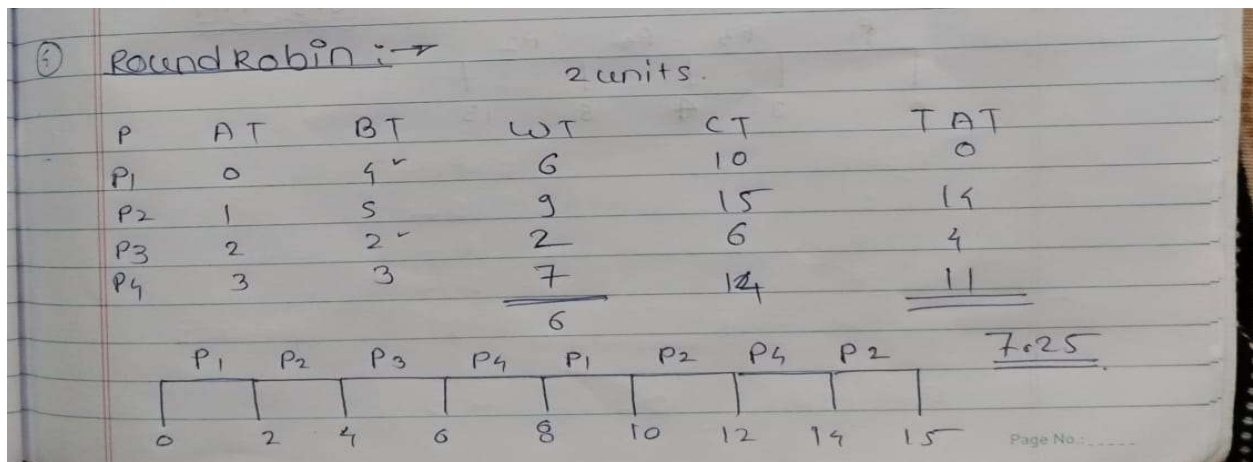 5 Round Robin :→
2 units.
P AT BT WT CT TAT
P1 0 4 ✓ 6 10 0
P2 1 5 9 15 14
P3 2 2 ✓ 2 6 4
P4 3 3 7 14 11
6
P1 P2 P3 P4 P1 P2 P4 P2 7.25
0 2 4 6 8 10 12 14 15
Page No.: